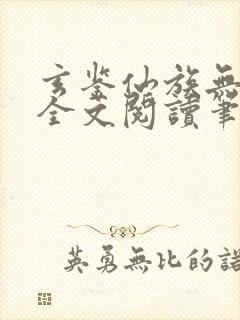 玄鉴仙族無
全文閱讀筆
英勇無比的諾